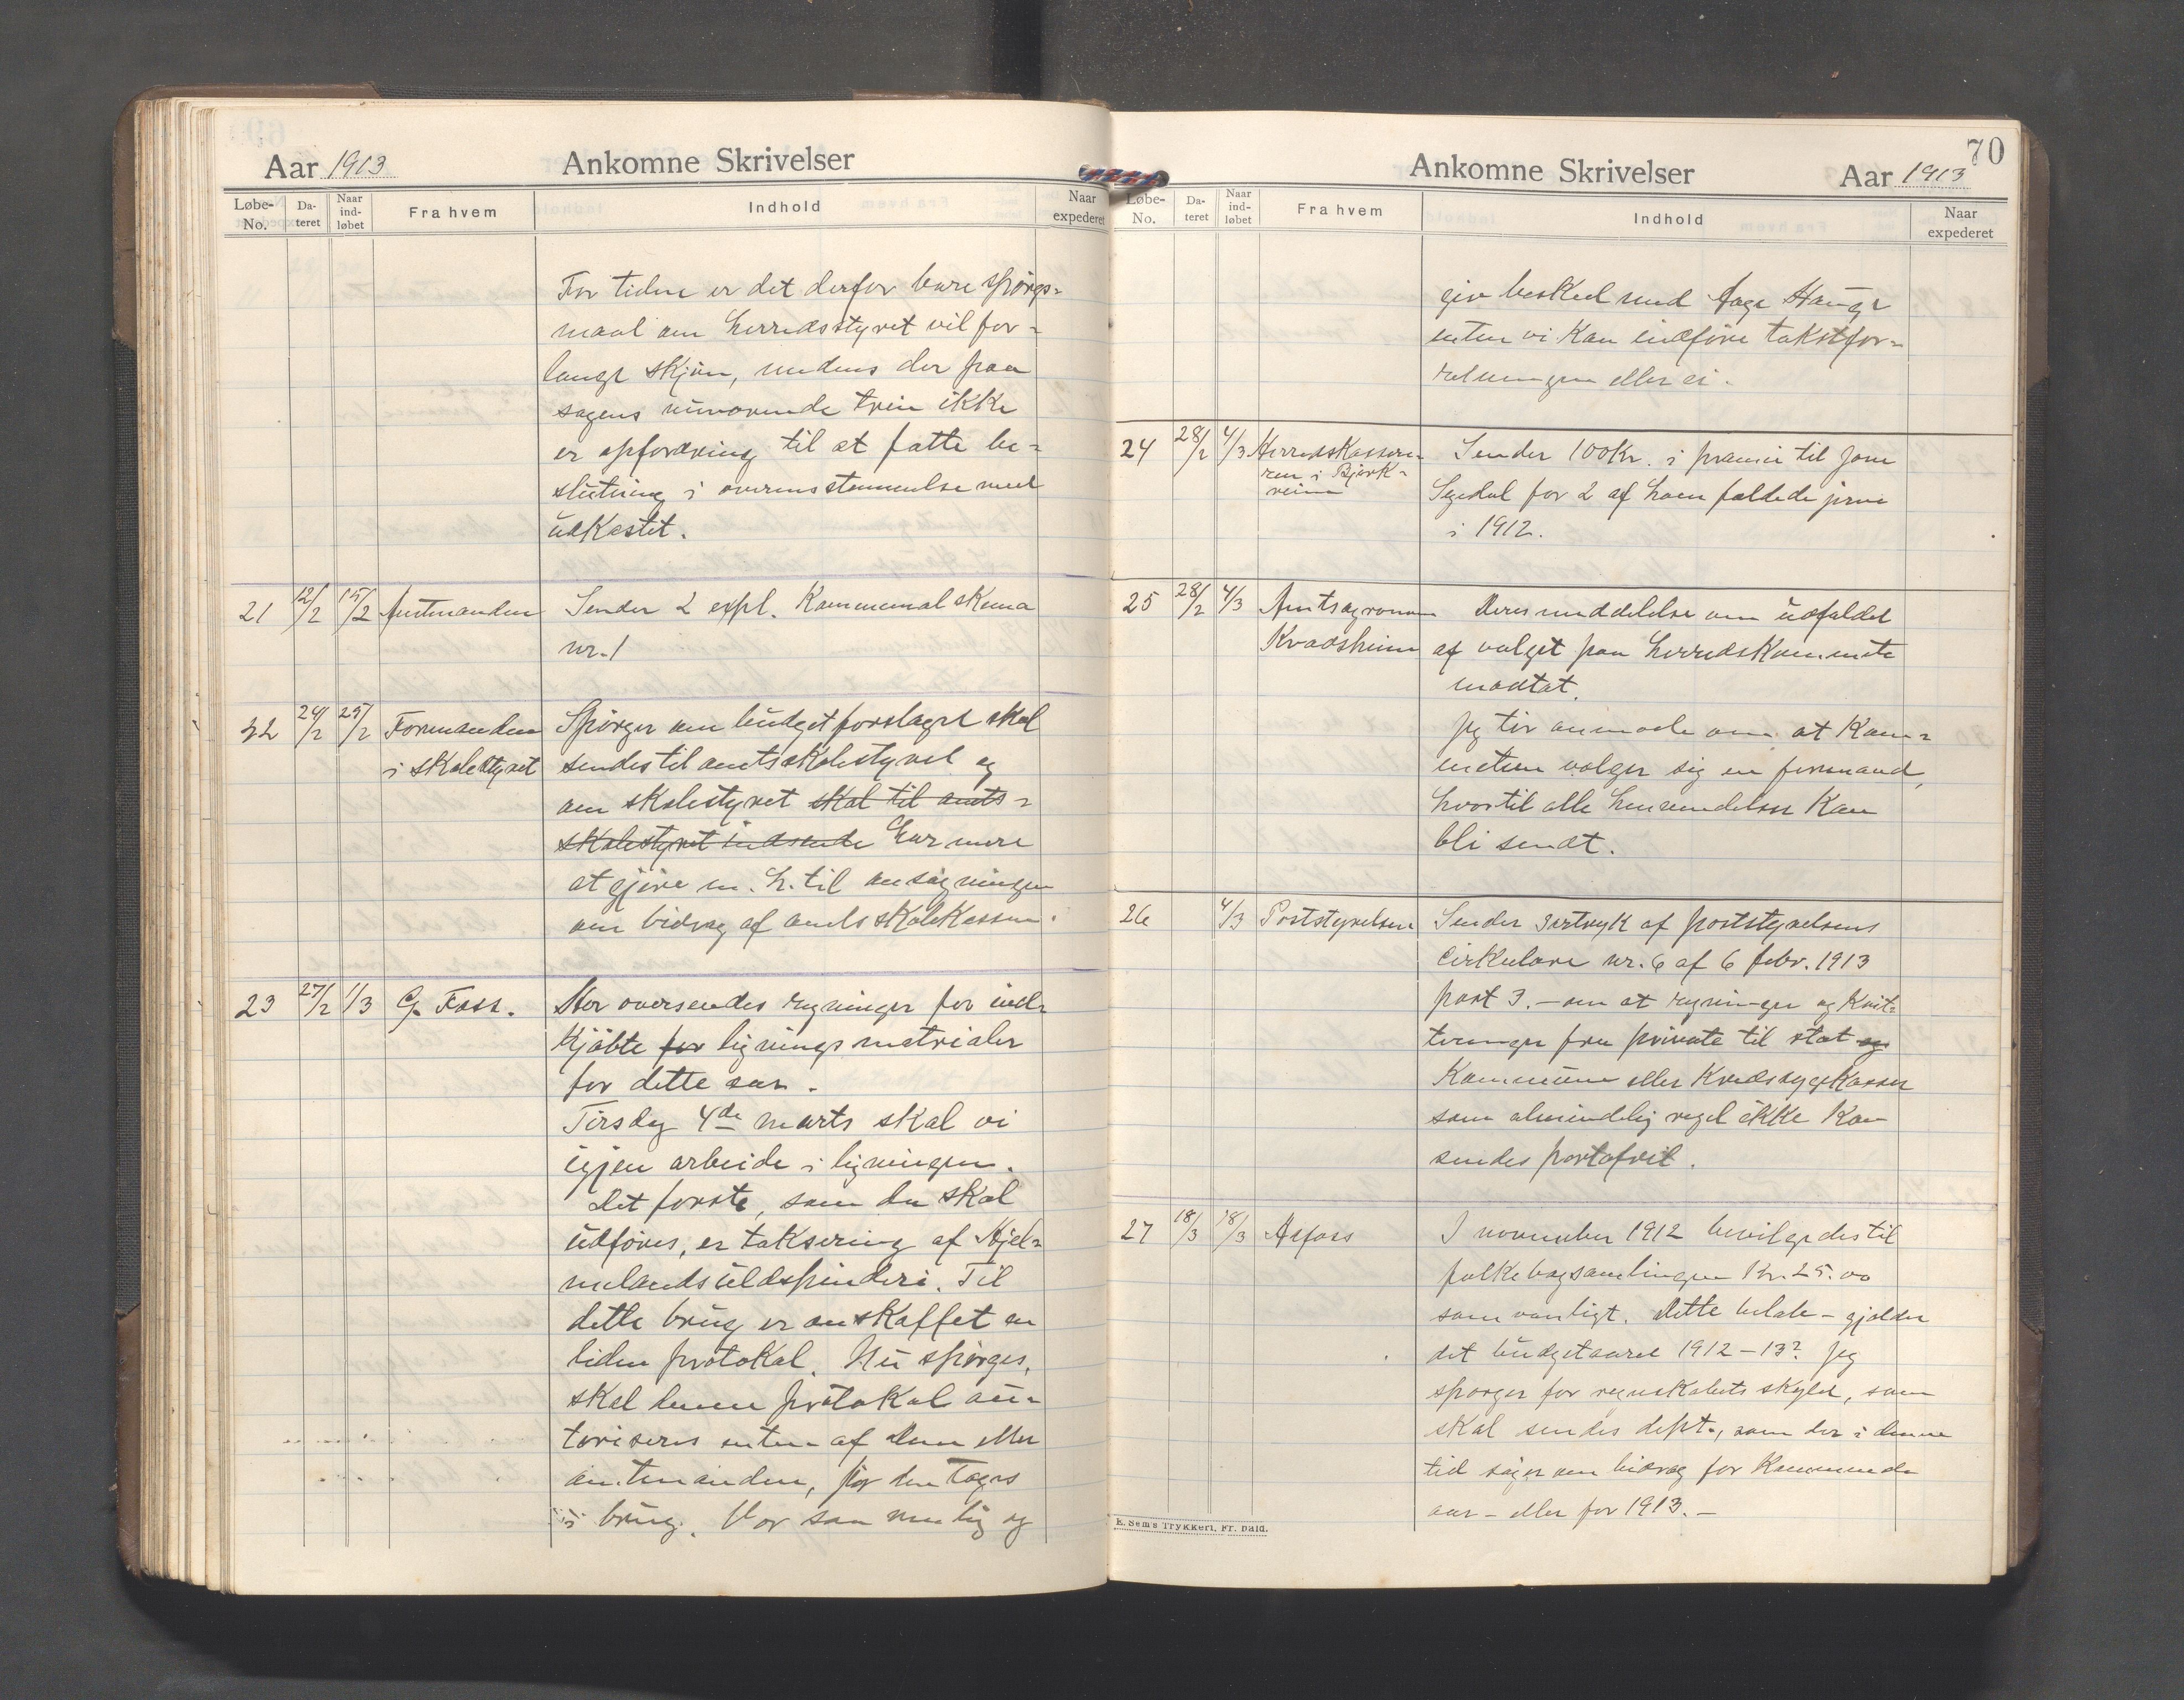 Aar 1913 Ankomne Skrivelser
Løbe-No. Da-teret Naar ind-løbet Fra hvem Indhold Naar expederet
For tiden er det derfor bare spörgs-
maal om herredsstyret vil for-
lange skjön, medens der paa
sagens nuværende trin ikke
er opfordring til at fatte be-
slutning i overensstemmelse med
udkastet.
21 12/2 15/2 Amtmanden Sender 2 expl. Kommunal skema
nr. 1
22 24/2 25/2 Formanden Spörger om budgetforslaget skal
i skolestyret sendes til amtsskolestyret og
om skolestyret skal til amts-
skolestyret indsende har mere
at gjöre m. h. til ansögningen
om bidrag af amtsskolekassen.
23 27/2 1/3 G. Foss. Her oversendes regninger for ind-
kjöbte for ligningsmatrialer
for dette aar.
Tirsdag 4de marts skal vi
igjen arbeide i ligningen.
Det forste, som du skal
udföres, er taksering af Hjel-
melands uldspinderi. Til
dette brug er anskaffet en
liden protokol. Nu spörges,
skal denne protokol au-
toriseres enten af Dem eller
amtmanden, för den tages
i brug. Vær saa venlig og
70
Ankomne Skrivelser Aar 1913
Løbe-No. Da-teret Naar ind-løbet Fra hvem Indhold Naar expederet
giv besked med Aage Hauge
enten vi kan indföre takstfor-
retningen eller ei.
24 28/2 4/3 Herredskassere- Sender 100 Kr. i præmie til Jone
ren i Bjerk- Segedal for 2 af ham fældede jerve
reim i 1912.
25 28/2 4/3 Amtsagronom Deres meddelelse om udfaldet
Kvadsheim af valget paa herredskommite
modtat.
Jeg tör anmode om at kom-
meteen vælger sig en formand,
hvortil alle henvendelser kan
bli sendt.
26 4/3 Poststyrelsen Sender særtryk af poststyrelsens
cirkulære nr. 6 af 6 febr. 1913
post 3. – om at regninger og kvit-
teringer fra private til stat og
Kommune eller Kredssygekasser
som almindelig regel ikke kan
sendes portofrit.
27 18/3 18/3 I november 1912 bevilgedes til
folkebogsamlingen Kr. 25.00
som vanligt. Dette beløb – gjælder
det budgetaaret 1912–13? Jeg
spörger for regnskabets skyld, som
skal sendes dept., som der i denne
tid söges om bidrag for kommende
aar – eller for 1913. –
E. Sem's Trykkeri, Fr.hald.